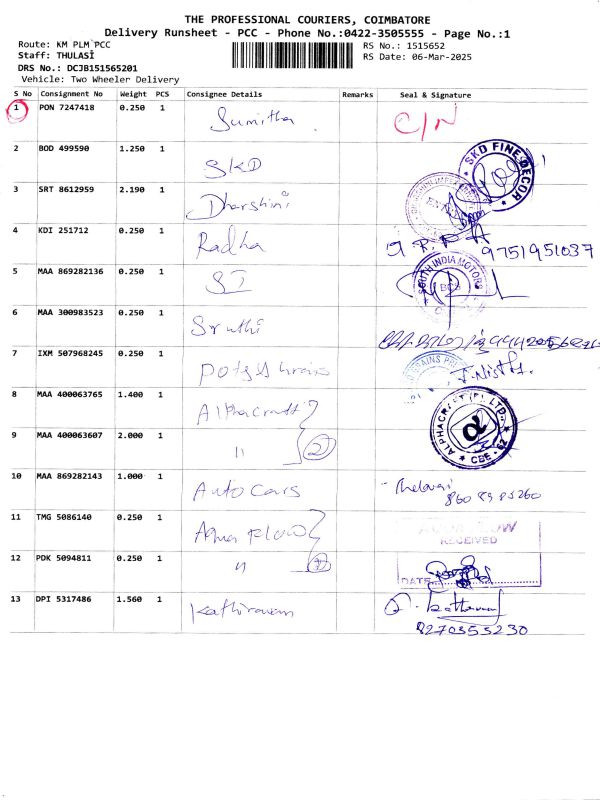 THE PROFESSIONAL COURIERS, COIMBATORE
Delivery Runsheet - PCC - Phone No.:0422-3505555 - Page No.:1
Route: KM PLM PCC
RS No.: 1515652
Staff: THULASI
RS Date: 06-Mar-2025
DRS No.: DCJB151565201
Vehicle: Two Wheeler Delivery
S No Consignment No Weight PCS Consignee Details Remarks Seal & Signature
1 PON 7247418 0.250 1 Sumitha C/N
2 BOD 499590 1.250 1 SKD SKD FINE DECOR
3 SRT 8612959 2.190 1 Dharshini
4 KDI 251712 0.250 1 Radha 9751951037
5 MAA 869282136 0.250 1 SI SOUTH INDIA MOTORS
6 MAA 300983523 0.250 1 Sruthi
7 IXM 507968245 0.250 1
8 MAA 400063765 1.400 1 Alphacraft ALPHACRAFT (P) LTD. CBE
9 MAA 400063607 2.000 1 " 2
10 MAA 869282143 1.000 1 Auto Cars
11 TMG 5086140 0.250 1 Aqua Flow RECEIVED
12 PDK 5094811 0.250 1 " DATE
13 DPI 5317486 1.560 1 Kathiravan
8270353230